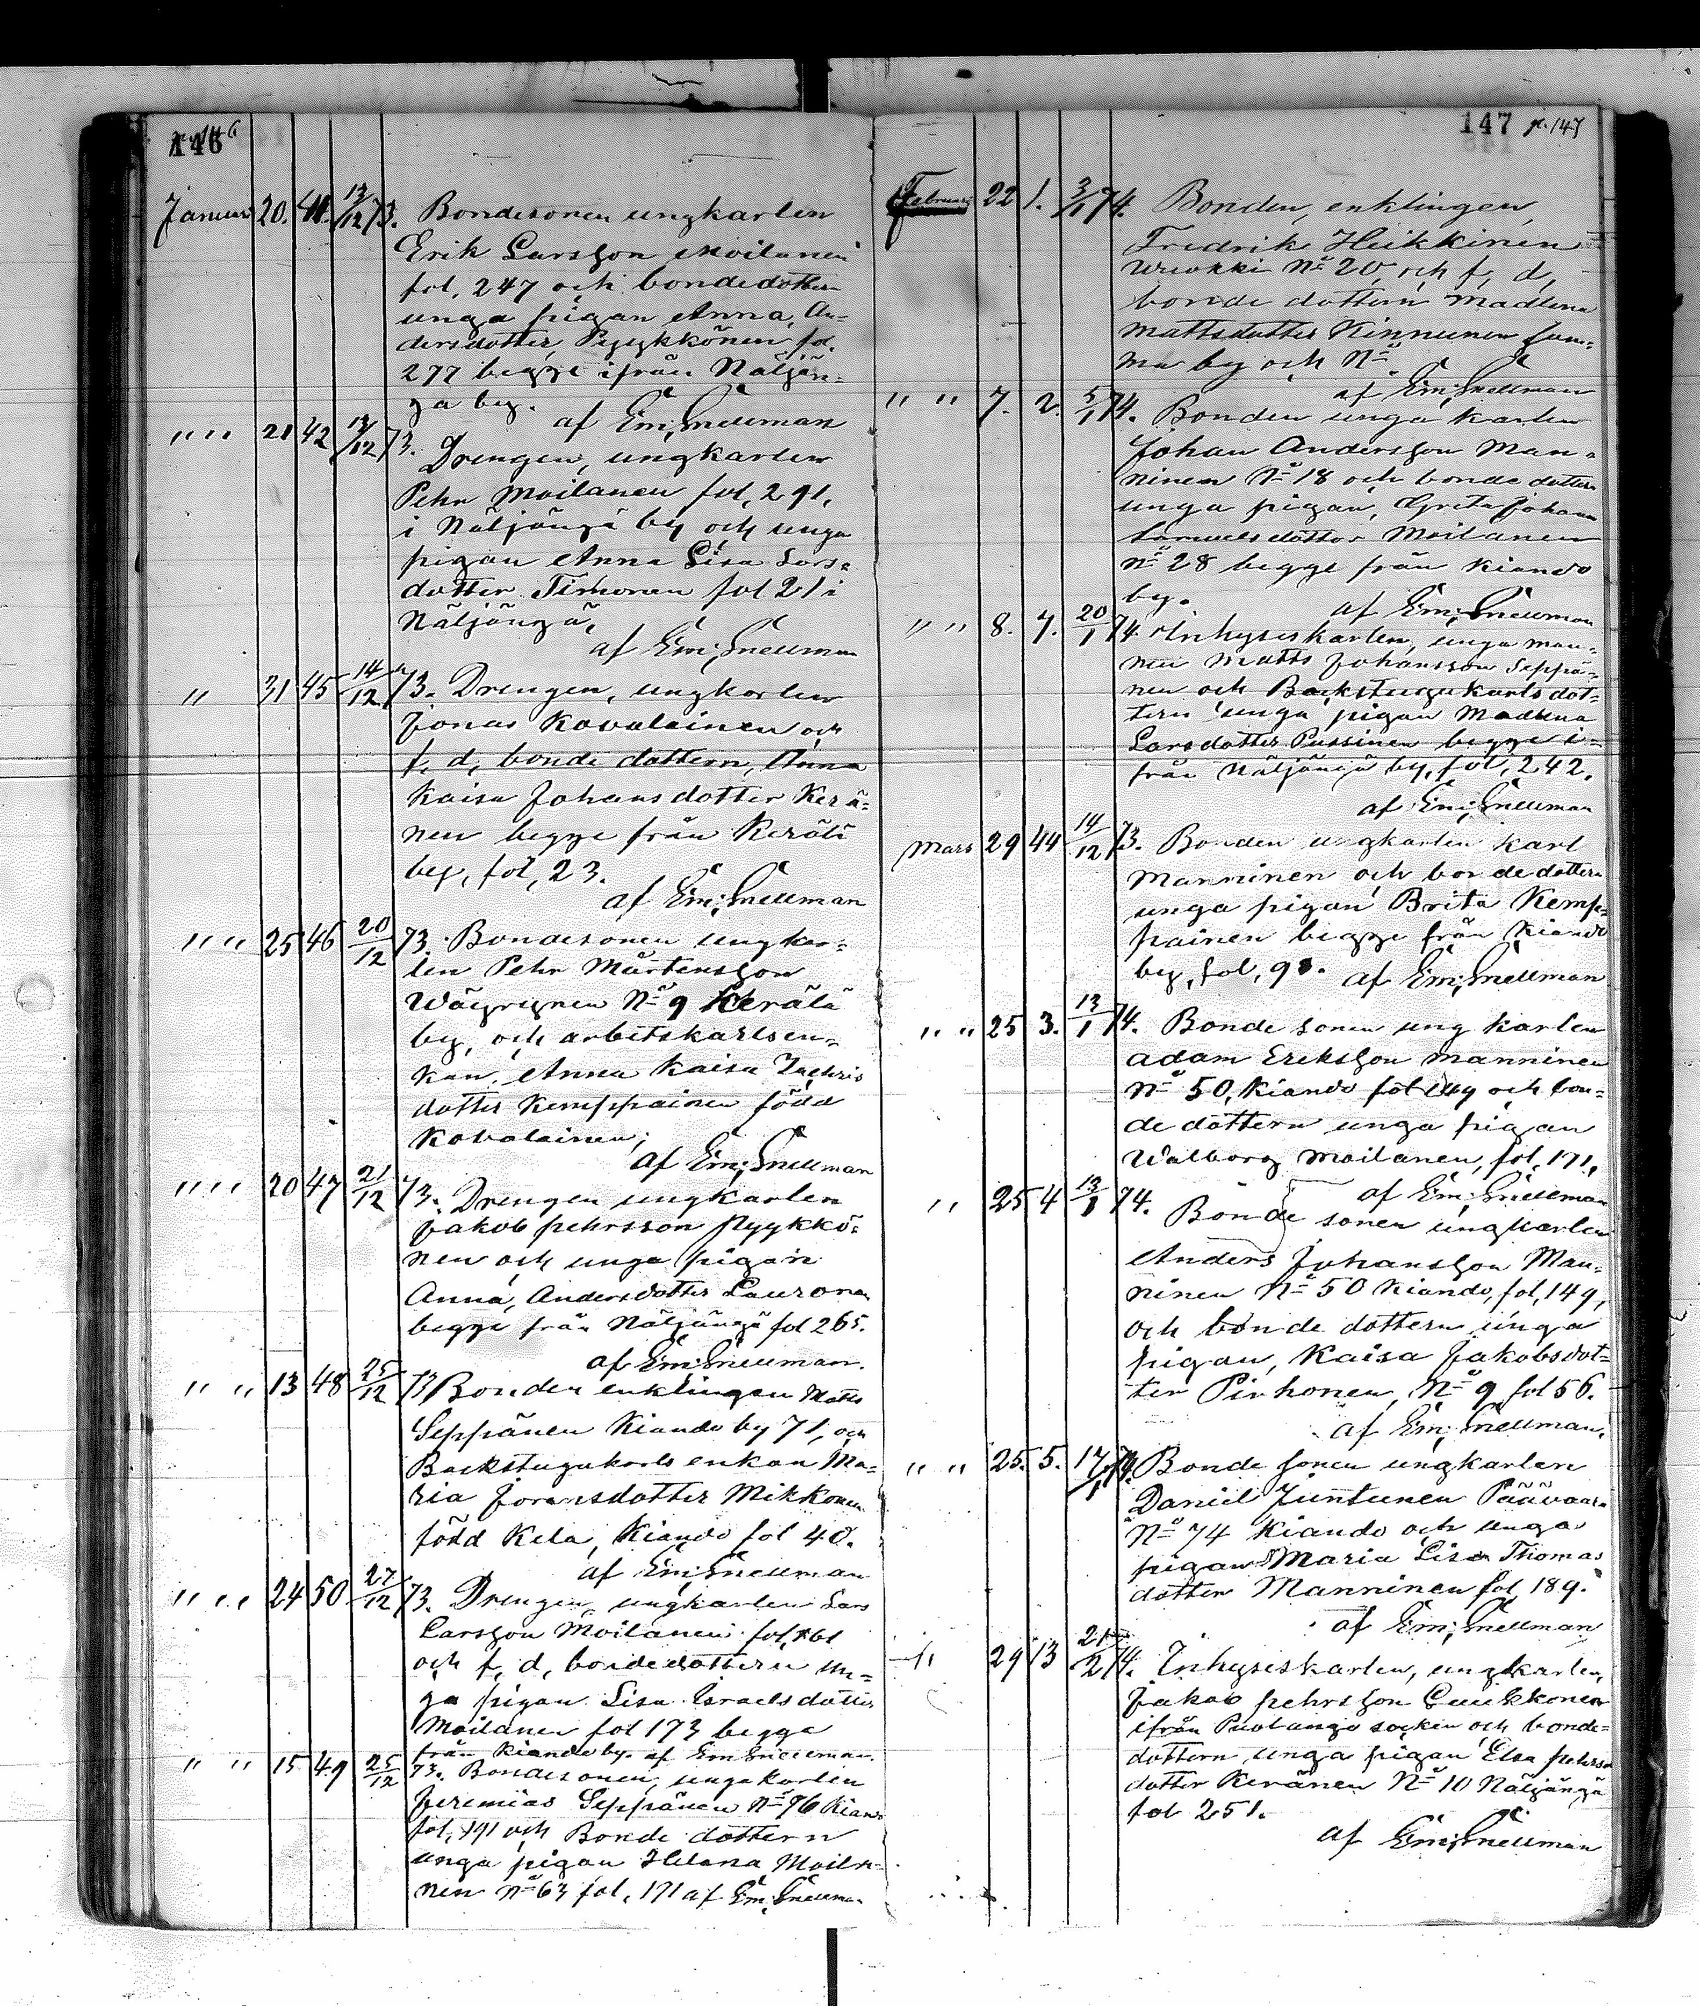 146
Januari 20. 41. 13/12 73. Bondesonen ungkarlen
Erik Larsson Moilanen
fol. 247 och bondedottern
unga pigan Anna, An-
dersdotter, Pyykkönen fol.
277 begge ifrån Näljän-
gä by.
af Em. Snellman
" " 21 42 13/12 73. Drengen, ungkarlen
Pehr Moilanen fol, 291,
i Näljängä by och unga
pigan Anna Lisa Lars-
dotter Timonen fol 21 i
Näljängä,
af Em. Snellman
" 31 45 14/12 73. Drengen, ungkarlen
Jonas Kovalainen och
f, d, bonde dottern, Anna
Kaisa Johansdotter Kerä-
nen begge från Kerälä
by, fol, 23.
af Em. Snellman
" " 25 46 20/12 73. Bondesonen ungkar-
len Pehr Mårtensson
Wäyrynen No 9 Kerälä
by, och arbetskarlsen-
kan, Anna Kaisa Zachris
dotter Kemppainen född
Kovalainen;
af Em. Snellman
" " 20 47 21/12 73. Drengen ungkarlen
Jakob pehrsson Pyykkö-
nen och unga pigan
Anna, Andersdotter Lauronen
begge från Näljängä fol 265.
af Em. Snellman.
" " 13 48 25/12 73 Bonden enklingen Matts
Seppänen Kiando by 71, och
Backstugukarls enkan Ma-
ria Joransdotter Mikkonen
född Kela, Kiando fol 40.
af Em. Snellman
" " 24 50 27/12 73. Drengen, ungkarlen Lars
Larsson Moilanen fol, 161
och f, d, bondedottern un-
ga pigan Lisa Israelsdotter
Moilanen fol 173 begge
från Kiando by. af Em. Snellman.
" " 15 49 25/12 73. Bondesonen, unga karlen
Jeremias Seppänen No 96 Kiando
fol, 191 och Bonde dottern
unga pigan Helena Moila-
nen No 63 fol, 171 af Em. Snellman
147 p. 147
Februari 22 1. 3/1 74. Bonden, enklingen,
Fredrik Heikkinen
Wuokki No 20, och f, d,
bonde dottern Madlena
Mattsdotter Kinnunen sam-
ma by och No.
af Em. Snellman
" " 7. 2. 5/1 74. Bonden unga karlen
Johan Andersson Man-
ninen No 18 och bonde dottern
unga pigan, Greta Johan
Samuelsdotter Moilanen
No 28 begge från Kiando
by.
af Em. Snellman
" " 8. 7. 20/1 74. Inhyseskarlen, unga man-
nen Matts Johansson Seppä-
nen och Backstugukarls dot-
tern unga pigan Madlena
Larsdotter Pussinen begge i-
från Näljängä by, fol, 242.
af Em. Snellman
Mars 29 44 14/12 73. Bonden ungkarlen Karl
Manninen och bondedottern
unga pigan Brita Kemp-
painen begge från Kiando
by, fol, 98. af Em. Snellman
" " 25 3. 13/1 74. Bonde sonen ung karlen
Adam Eriksson Manninen
No 50, Kiando fol 149 och bon-
de dottern unga pigan
Walborg Moilanen, fol, 171,
af Em. Snellman
" 25 4 13/1 74. Bonde sonen ungkarlen
Anders Johansson Man-
ninen No 50 Kiando, fol, 149,
och bonde dottern unga
pigan, Kaisa Jakobsdot-
ter Pirhonen, No 9 fol 56.
af Em. Snellman.
" " 25. 5. 17/1 74. Bonde sonen ungkarlen
Daniel Juntunen Päävaara
No 74 Kiando och unga
pigan Maria Lisa Thomas
dotter Manninen fol 189.
af Em. Snellman
" 29 13 21/2 74. Inhyseskarlen, ungkarlen,
Jakob pehrsson Quickkonen
ifrån Puolango socken och bonde-
dottern, unga pigan Elsa pehrs
dotter Keränen No 10 Näljängä
fol 251.
af Em. Snellman